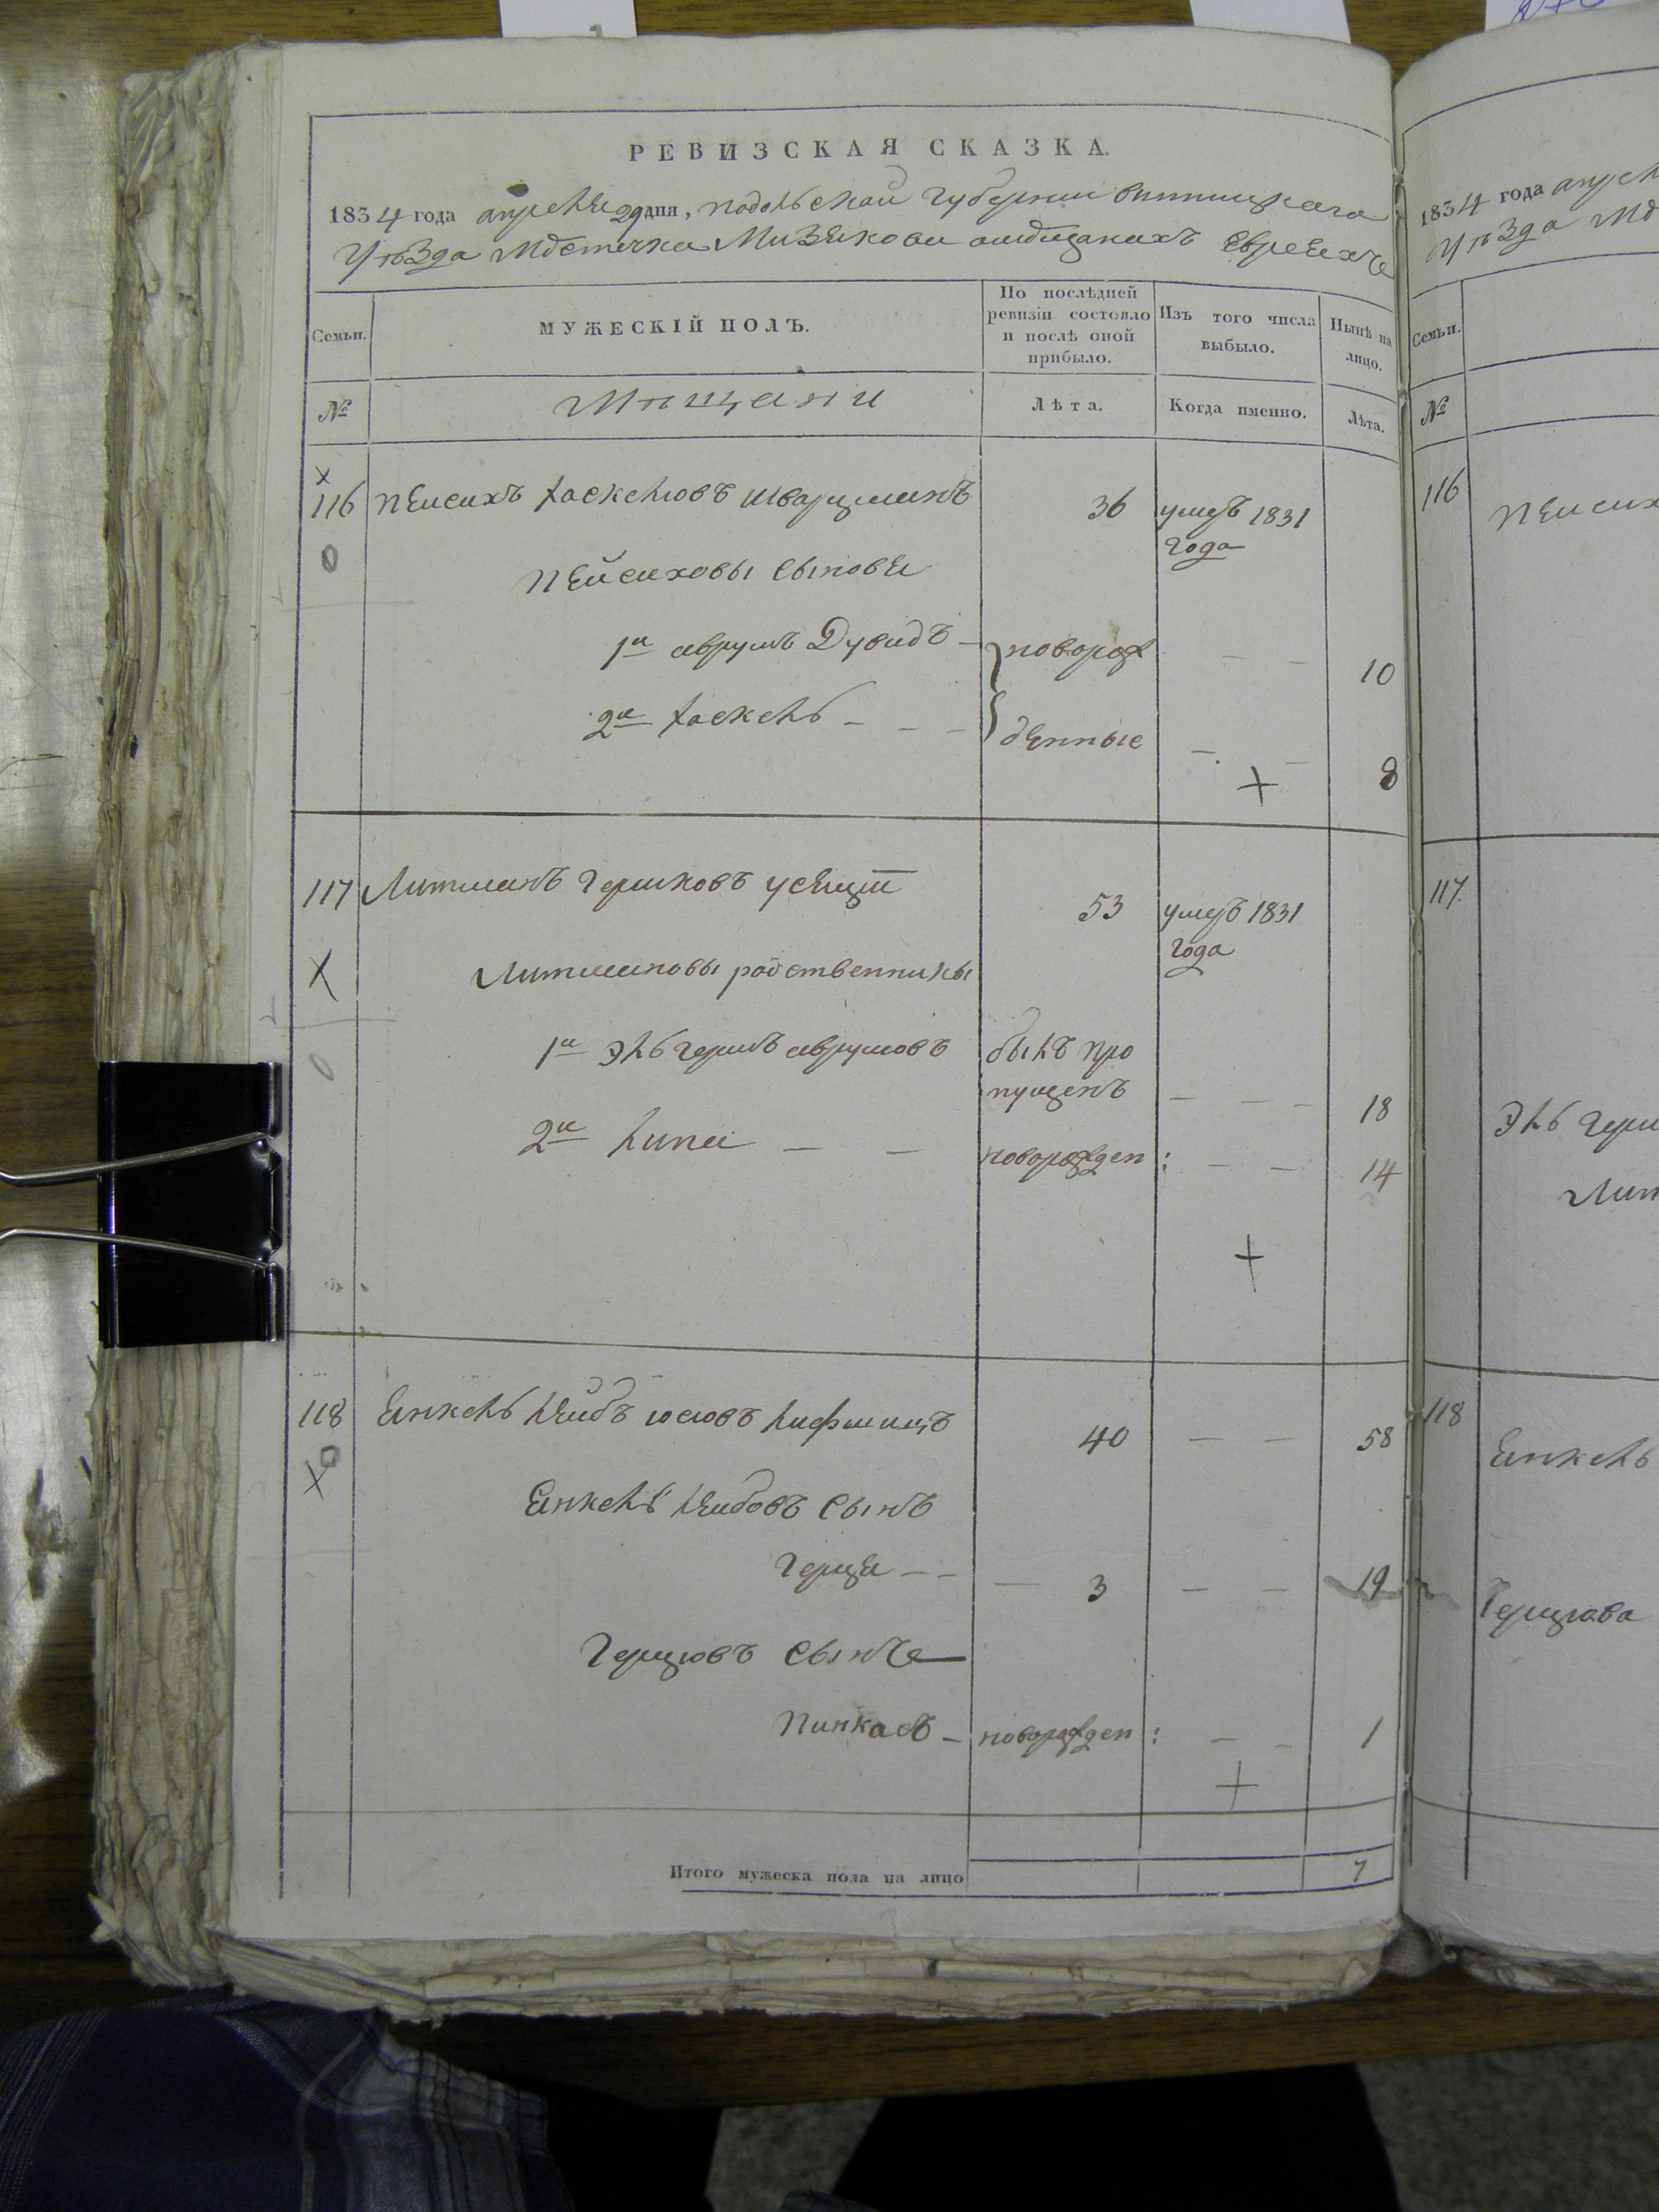 РЕВИЗСКАЯ СКАЗКА.
1834 года апреля 29 дня, подольской губернии винницкаго
уѣзда местечка Мизякова о мѣщанахъ евреяхъ
Семьи.
МУЖЕСКІЙ ПОЛЪ.
По послѣдней ревизіи состояло и послѣ оной прибыло.
Изъ того числа выбыло.
Нынѣ на лицо.
№
Мѣщани
Лѣта.
Когда именно.
Лѣта.
116 пейсихъ хаскелювъ шварцманъ 36 умеръ 1831
года
пейсиховы сыновя
1й аврумъ Дувидъ – новорож – – 10
2й хаскель – – – денные – – 8
117 Литманъ Гершковъ 53 умеръ 1831
года
Литмановы родственники
1й Эль гершъ аврумовъ былъ про
пущенъ – – – 18
2й липа – – новорожден: – – 14
118 янкель лейбъ іосювъ лифшицъ 40 – – 58
янкель лейбовъ сынъ
герця – – – 3 – – 19
Герцювъ сынъ
Пинкасъ – новорожден: – – 1
Итого мужеска пола на лицо 7
1834 года
уѣзда
Семьи.
№
116 пейсих
117.
Эль герш
Лит
118 янкель
Герцюва